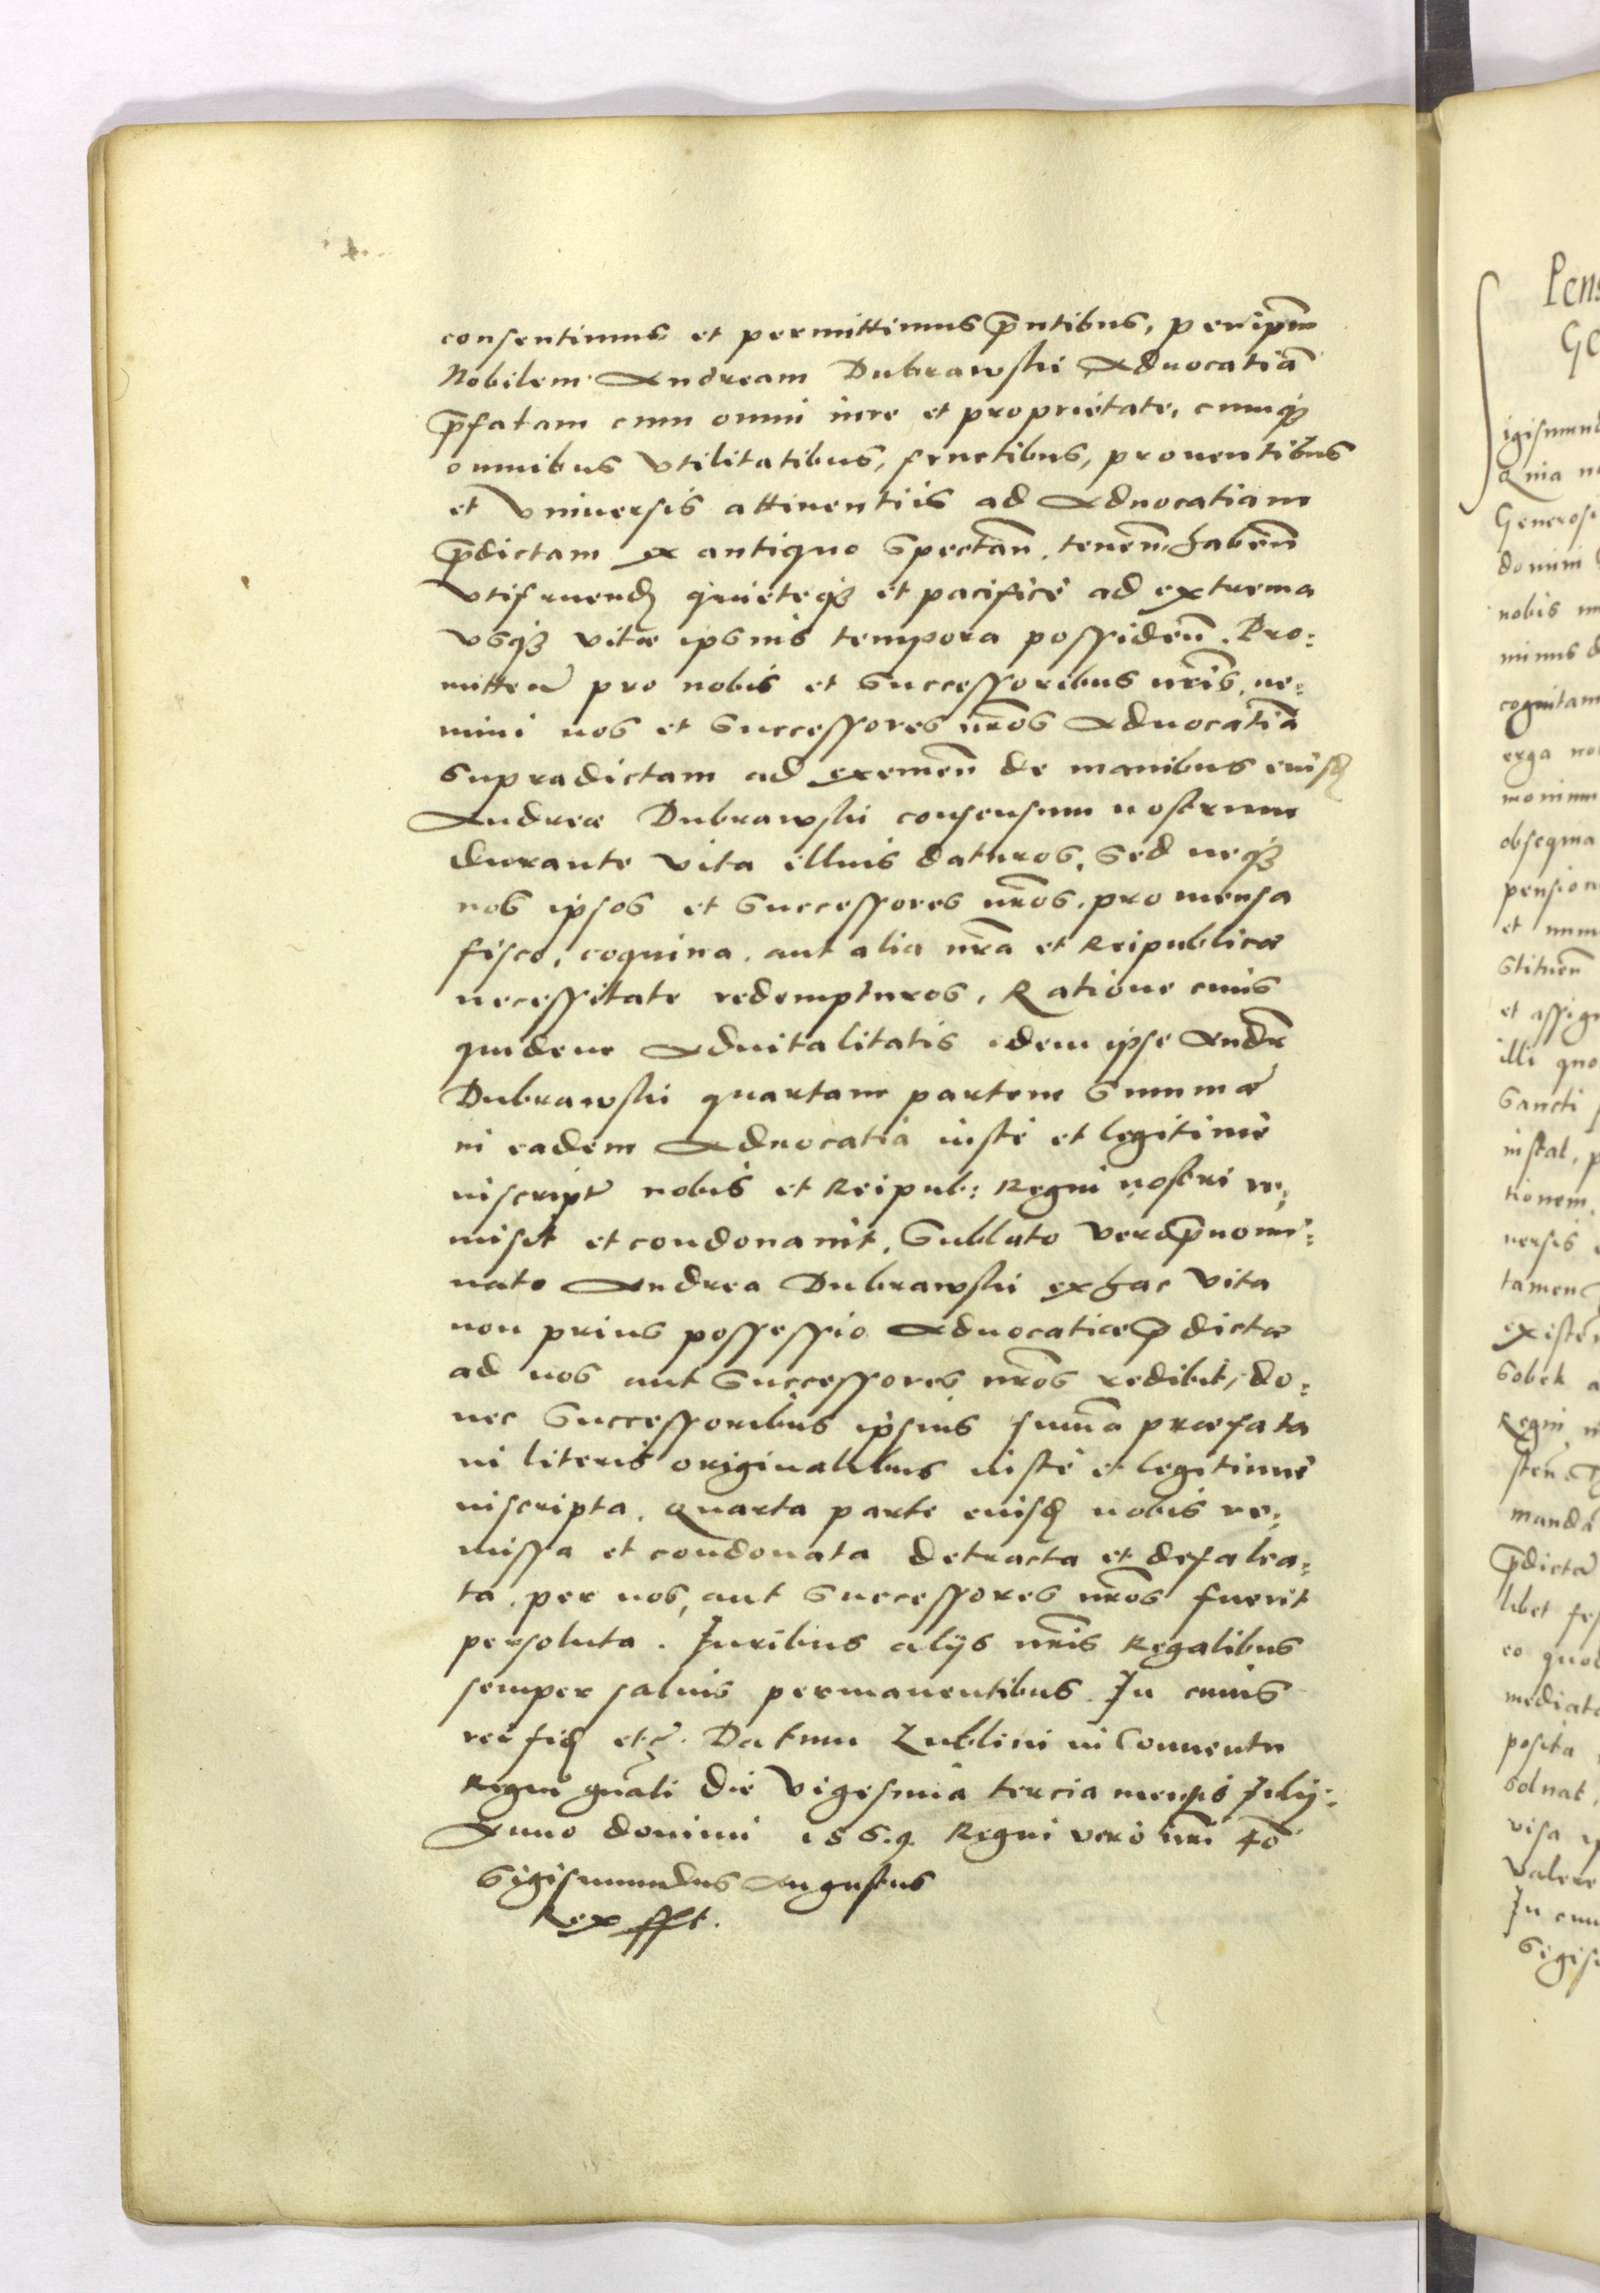 consentimus et permittimus p̄ntibus, per ip̄m
Nobilem Andream Dubrawski Aduocatiā
p̄fatam cum omni iure et proprietate, cumq3
omnibus vtilitatibus, fructibus, prouentibus
et vniuersis attinentiis ad Aduocatiam
p̄dictam ex antiquo spectan̄, tenen̄ haben̄
vtifruend quieteq3 et pacificè ad extrema
vsq3 vitæ ipsius tempora possiden̄. Pro:
mitten̄ pro nobis et successoribus nr̄is, ne:
mini nos et successores nr̄os Aduocatiā
supradictam ad eximen̄ de manibus eiusd
Andreæ Dubrawski consensum nostrum
durante vita illius daturos, sed neq3
nos ipsos et successores nr̄os, pro mensa
fisco, coquina, aut alia nr̄a et Reipublicæ
necessitate redempturos. Ratione cuius
quidem Aduitalitatis idem ipse Andr̄
Dubrawski quartam partem summæ
in eadem Aduocatia iustè et legitimè
inscriptæ nobis et Reipub: Regni nostri re:
misit et condonauit. Sublato vero p̄nomi:
nato Andrea Dubrawski ex hac vita
non prius possessio Aduocatiæ p̄dictæ
ad nos aut successores nr̄os redibit, do:
nec successoribus ipsius sum̄a præfata
in literis originalibus iustè et legitimè
inscripta, quarta parte eiusd nobis re:
missa et condonata detracta et defalca:
ta, per nos, aut successores nr̄os fuerit
persoluta. Juribus alijs nr̄is Regalibus
semper saluis permanentibus. In cuius
rei fid etc. Datum Lublini in Conuentu
Regni gn̄ali die vigesima tercia mensis Julij.
Anno domini 1569. Regni vero nr̄i 40
Sigismundus Augustus
Rex sst.
Pens
Ge
igismund
Quia n
Generosi
domini
nobis
minus d
cognitam
erga no
monium
obsequia
pension
et
stituen̄
et assig
illi quo
Sancti
instat, p
tionem
uersis
tamen
existen
Sobek a
Regni
manda
p̄dictæ
libet fes
eo quod
mediat
posita
soluat,
visa
valere
In cuius
Sigis